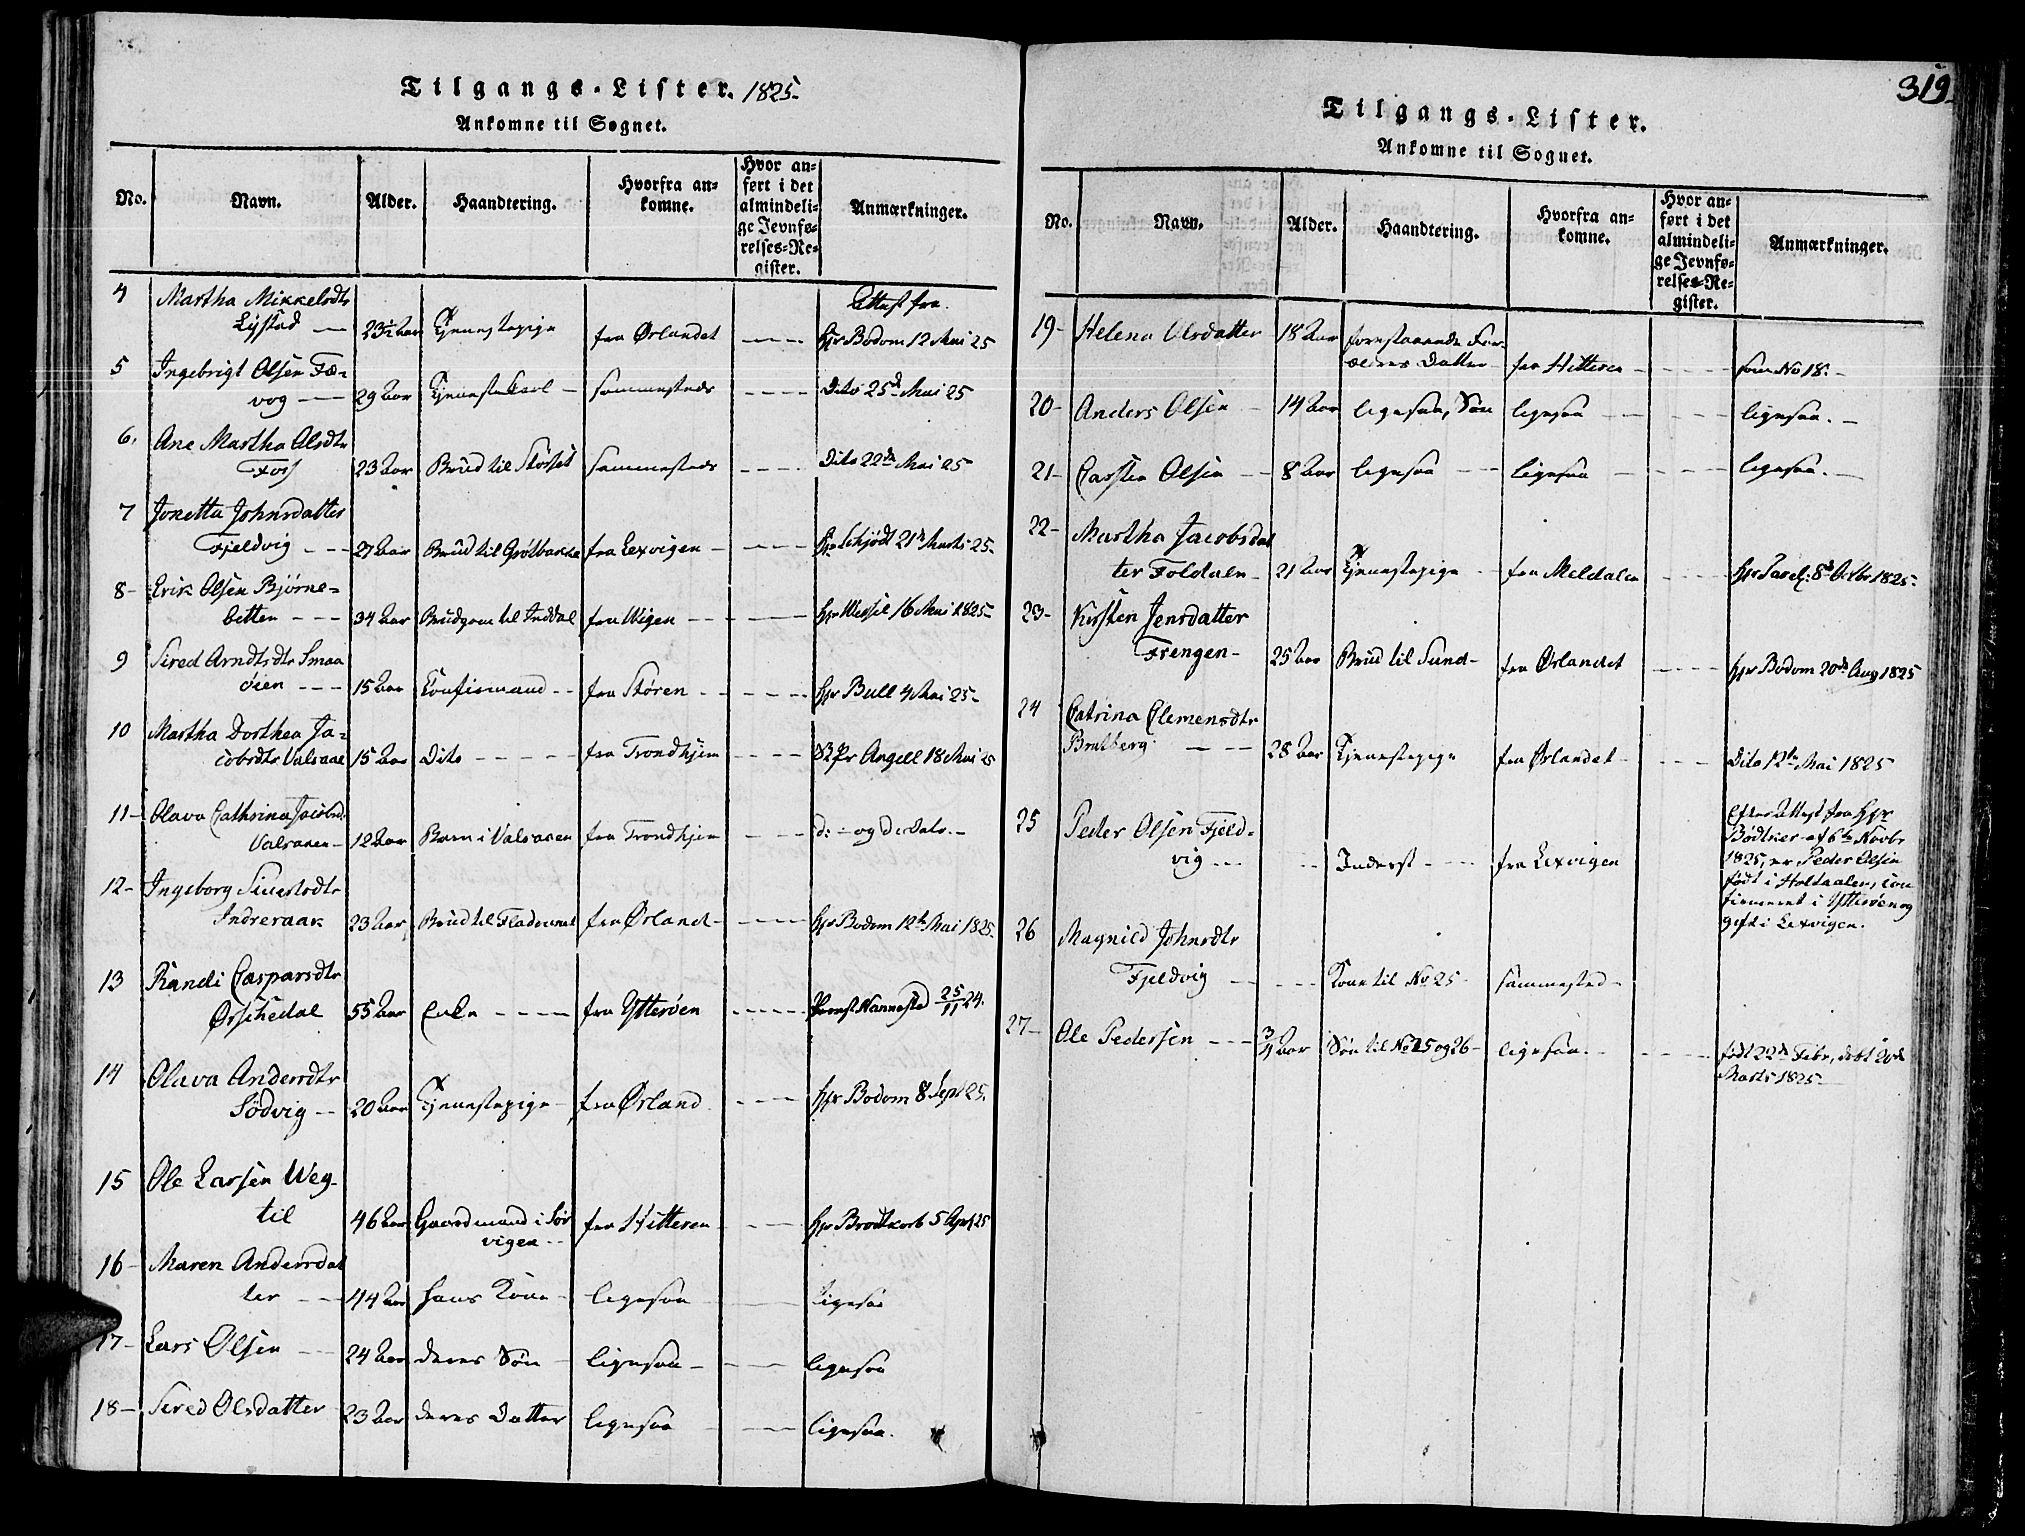 Tilgangs-Lister. 1825.
Ankomne til Sognet.
No. Navn. Alder. Haandtering. Hvorfra ankomne. Hvor anført i det almindelige Jevnførelses-Register. Anmærkninger.
4 Martha Mikkelsdtr Attest fra
Lystad — 23½ Aar Tjenestepige fra Ørlandet ---- Hr Bodom 12 Mai 25
5 Ingebrigt Olsen Fæ-
vog — 29 Aar Tjenestekarl — sammesteds ---- Dito 25d Mai 25
6. Ane Martha Olsdtr
Foss 23 Aar Brud til Storset sammesteds ---- Dito 22de Mai 25
7 Jonetta Johnsdatter
Fjeldvig --- 27 Aar Brud til Grøtbakke fra Lexvigen — ---- Hr Schjødt 21d Marts 25-
8- Erik Olsen Bjørne-
betten --- 34 Aar Brudgom til Inddal fra Wigen ---- Hr Wessel 16 Mai 1825-
9 Sired Arndtsdtr Smaa
øien --- 15 Aar Confirmand -- fra Støren ---- Hr Bull 4 Mai 25-
10 Martha Dorthea Ja-
cobsdtr Valsaae 15 Aar Dito ----- fra Trondhjem ---- Angell 18 Mai 25
11- Olava Cathrina Jacobsd.
Valsaaen- 12 Aar Barn i Valsaaen fra Trondhjem --- d: — og d: Dato.-
12- Ingeborg Siuertsdtr
Indreraak 23 Aar Brud til fra Ørland- ---- Hr Bodom 12te Mai 1825-
13 Randi Caspersdtr
Ørschedal 55 Aar Enke ---- fra Ytterøen ----- Provst Nannestad 25/11 24.
14 Olava Andersdtr
Sødvig -- 20 Aar Tjenestepige- fra Ørland ---- Hr Bodom 8 Sept 25.
15 Ole Larsen Weg-
til 46 Aar Gaardmand i Sør fra Hitteren --- Hr Brodtkorb 5 Apr 25
vigen --
16- Maren Andersdat
ter --- 44 Aar hans Kone- ligesaa --- Ligesaa
17- Lars Olsen --- 24 Aar deres Søn ligesaa- ---- ligesaa
18- Sired Olsdatter 23 Aar deres Datter ligesaa ---- ligesaa.
319.
Tilgangs-Lister.
Ankomne til Sognet.
No. Navn. Alder. Haandtering. Hvorfra ankomne. Hvor anført i det almindelige Jevnførelses-Register. Anmærkninger.
19- Helena Olsdatter 18 Aar forestaaende For-
ældres Datter fra Hitteren ---- som No 18.-
20- Anders Olsen — 14 Aar ligesaa, Søn ligesaa --- ligesaa.-
21- Carsten Olsen -- 8 Aar ligesaa -- ligesaa ---- ligesaa.-
22- Martha Jacobsdat
ter Foldalen- 21 Aar Tjenestepige -- fra Meldalen ---- 8d Octbr 1825-
23- Kirsten Jensdatter
Frengen- 25 Aar Brud til Sund- fra Ørlandet ---- Hr Bodom 20de Aug 1825
24 Catrina Clemensdtr
Bratberg. — -- 28 Aar Tjenestepige fra Ørlandet- --- Dito 12te Mai 1825
25 Peder Olsen Fjeld-
vig --- --- Inderst --- fra Lexvigen
Efter Attest fra Hr
Bødtker af 6te Novbr
1825, er Peder Olsen
født i Holtaalen, con
firmeret i Ytterøen og
gift i Lexvigen.
26 Magnild Johnsdtr
Fjeldvig --- --- Kone til No 25- sammested-
27- Ole Pedersen --- ¾ Aar Søn til No 25 og 26- ligesaa.- ---- født 22d Febr, døbt 20de
Marts 1825-